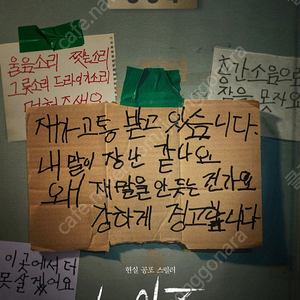 울음소리 짖는소리
그릇소리 드라이기소리
멈춰주세요
층간소음으로
잠을 못자요
제가 고통 받고 있습니다.
내 말이 장난 같나요
왜 제 말을 안 듣는 건가요
강하게 경고합니다
이 곳에서 더
못살겠어요
현실 공포 스릴러